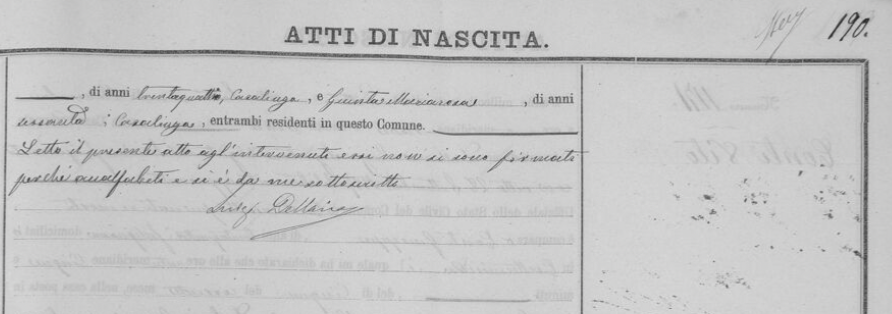 190.
ATTI DI NASCITA.
, di anni trentaquattro, Casalinga, e Giunta Mariarosa, di anni
sessanta, Casalinga, entrambi residenti in questo Comune.
Letto il presente atto agl'intervenuti essi non si sono firmati
perché analfabeti e si è da me sottoscritto
Luigi